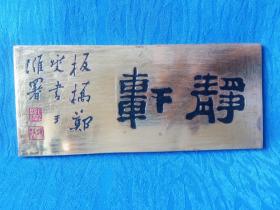 靜軒
板橋鄭
燮書于
濰署